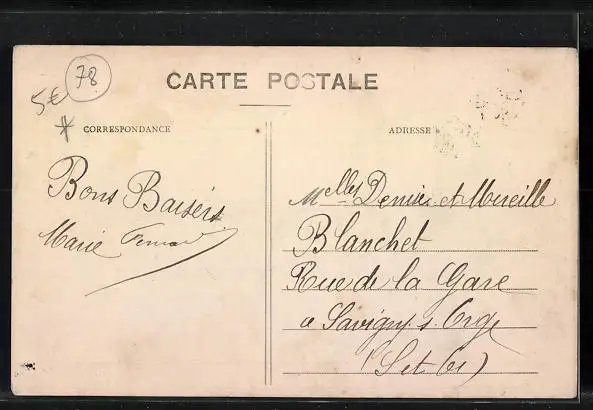 78
5€
CARTE POSTALE
* CORRESPONDANCE
ADRESSE
Bons Baisers
Marie Fernand
Melles Denise et Mireille
Blanchet
Rue de la Gare
a Savigny s. Orge
(S et O)